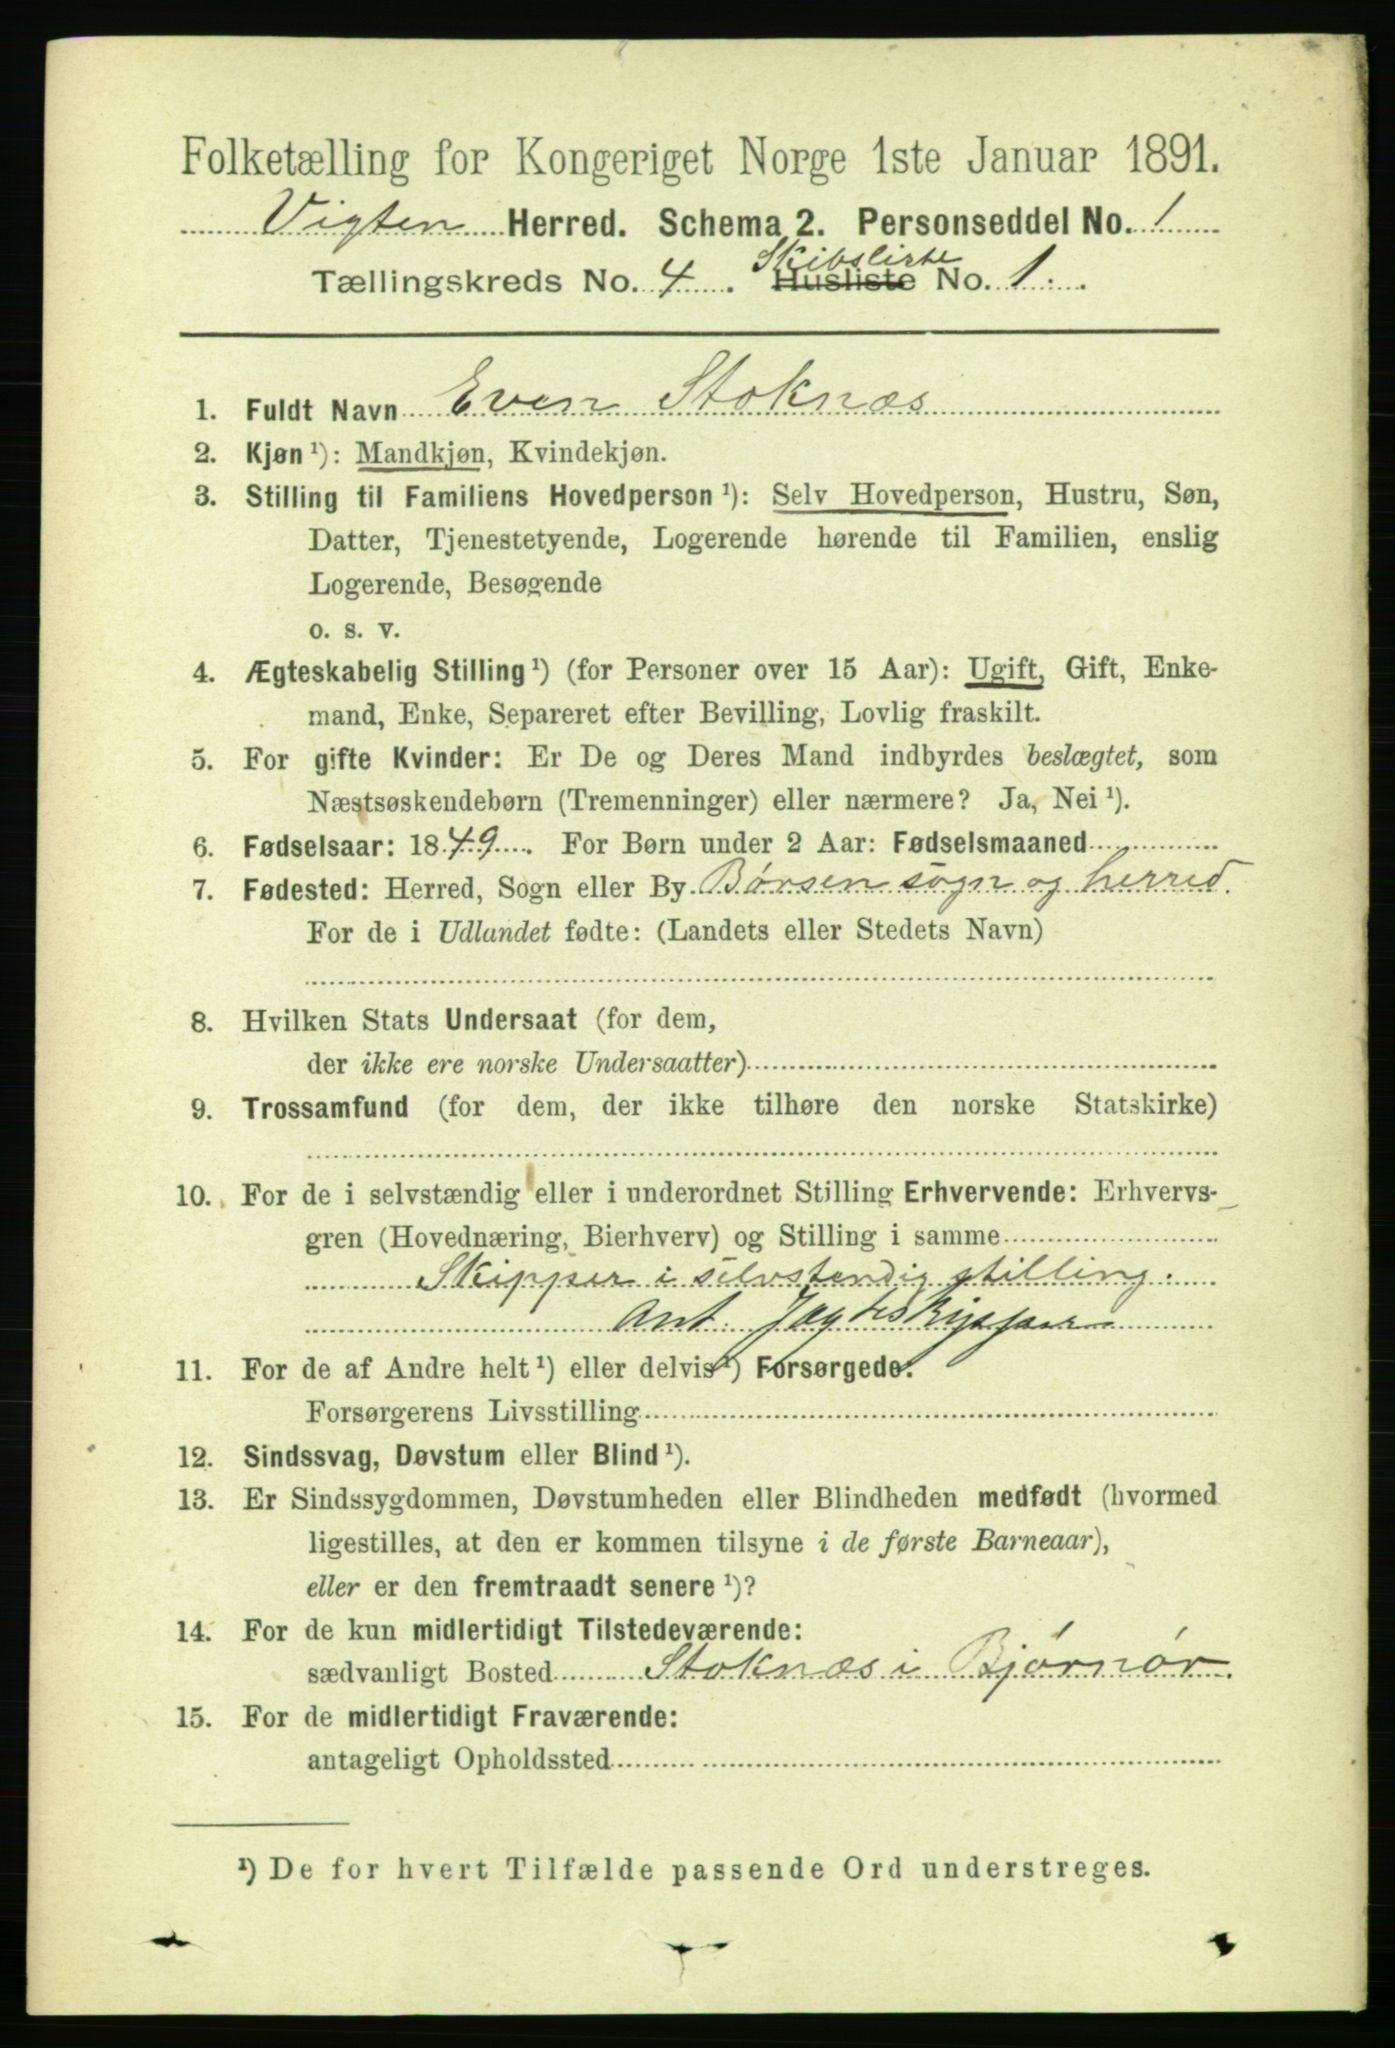 Folketælling for Kongeriget Norge 1ste Januar 1891.
Vigten Herred. Schema 2. Personseddel No. 1
Skibsliste
Tællingskreds No. 4. Husliste No. 1.
1. Fuldt Navn Even Stoknæs
2. Kjøn ¹): Mandkjøn, Kvindekjøn.
3. Stilling til Familiens Hovedperson ¹): Selv Hovedperson, Hustru, Søn,
Datter, Tjenestetyende, Logerende hørende til Familien, enslig
Logerende, Besøgende
o. s. v.
4. Ægteskabelig Stilling ¹) (for Personer over 15 Aar): Ugift, Gift, Enke-
mand, Enke, Separeret efter Bevilling, Lovlig fraskilt.
5. For gifte Kvinder: Er De og Deres Mand indbyrdes beslægtet, som
Næstsøskendebørn (Tremenninger) eller nærmere? Ja, Nei ¹).
6. Fødselsaar: 1849. For Børn under 2 Aar: Fødselsmaaned
7. Fødested: Herred, Sogn eller By Børsen sogn og herred.
For de i Udlandet fødte: (Landets eller Stedets Navn)
8. Hvilken Stats Undersaat (for dem,
der ikke ere norske Undersaatter)
9. Trossamfund (for dem, der ikke tilhøre den norske Statskirke)
10. For de i selvstændig eller i underordnet Stilling Erhvervende: Erhvervs-
gren (Hovednæring, Bierhverv) og Stilling i samme
Skipper i selvstendig stilling.
ant. Jagtskipper
11. For de af Andre helt ¹) eller delvis ¹) Forsørgede:
Forsørgerens Livsstilling
12. Sindssvag, Døvstum eller Blind ¹).
13. Er Sindssygdommen, Døvstumheden eller Blindheden medfødt (hvormed
ligestilles, at den er kommen tilsyne i de første Barneaar),
eller er den fremtraadt senere ¹)?
14. For de kun midlertidigt Tilstedeværende:
sædvanligt Bosted Stoknæs i Bjørnør.
15. For de midlertidigt Fraværende:
antageligt Opholdssted
¹) De for hvert Tilfælde passende Ord understreges.